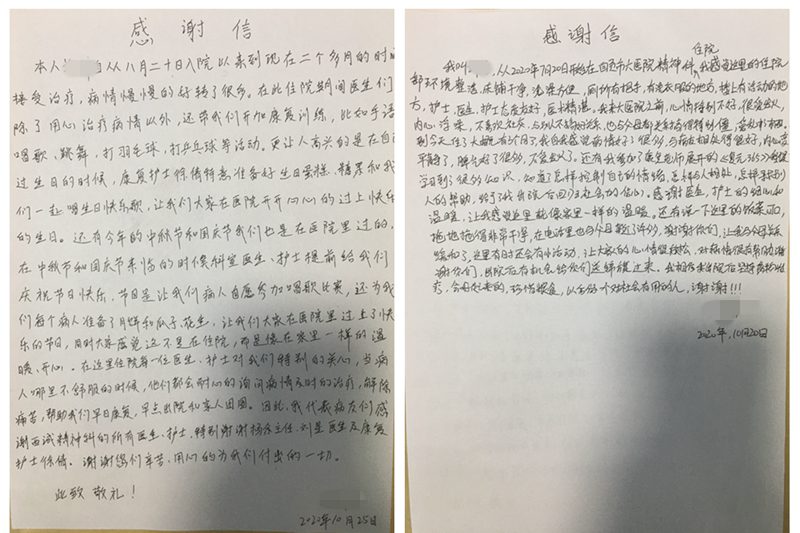 感谢信
本人 自从八月二十日入院以来到现在二个多月的时间
接受治疗,病情慢慢的好转了很多。在此住院期间医生们
除了用心治疗病情以外,还带我们开加康复训练,比如手语
唱歌、跳舞、打羽毛球、打乒乓球等活动。更让人高兴的是在自己
过生日的时候,康复护士 特意准备好生日蛋糕、糖果和我
们一起唱生日快乐歌,让我们大家在医院开开心心的过上快乐
的生日。还有今年的中秋节和国庆节我们也是在医院里过的,
在中秋节和国庆节来临的时候科室医生、护士提前给我们
庆祝节日快乐,节日是让我们病人自愿参加唱歌比赛,还为我
们每个病人准备了月饼和瓜子、花生,让我们大家在医院里过上了快
乐的节日,同时大家感觉这不是在住院,而是像在家里一样的温
暖、开心。在这里住院每一位医生、护士对我们特别的关心,当病
人哪里不舒服的时候,他们都会耐心的询问病情及时的治疗,解除
痛苦,帮助我们早日康复,早点出院和家人团圆。因此,我代表病友们感
谢西诚精神科的所有医生、护士,特别谢谢杨 主任、刘 医生及康复
护士 。谢谢您们辛苦、用心的为我们付出的一切。
此致 敬礼!
2020年10月25日
感谢信
住院
我叫 ,从2020年7月20日开始在 医院精神科,我感觉这里的住院
部环境整洁,床铺干净,洗澡方便,厕所有扶手,有洗衣服的地方,楼上有活动的地
方,护士、医生、护士态度友好,医术精湛。我来大医院之前,心情特别不好,很爱发火,
内心 ,不喜欢社交,与别人不 ,也与父母 关系 得特别僵,
到今天住了大概有3个月了,我自我感觉病情好了很多,与病友相处得很好,内心
平静了,脾气好了很多,不爱发火了。还有我参加了康复老师展开的
学习到了很多知识,知道了怎样控制自己的情绪,怎样与人相处,怎样来
人的帮助,给了我出院后回归社会的信心。感谢医生,护士的细心和
温暖,让我感觉这里就像家里一样的温暖。还有说一下这里的饭菜可口,
拖地拖得非常干净,在电话里也与父母聊了许多,谢谢你们,让我与父母关系
缓和了,这里有时还会有小活动,让大家的心情更轻松,对病情很有帮助,谢
谢你们,出院后有机会给你们送锦旗过来。我相信未来出院后坚持药物治
疗,会再好起来的,珍惜眼前,以后做个对社会有用的人,谢谢!!!
2020年,10月20日